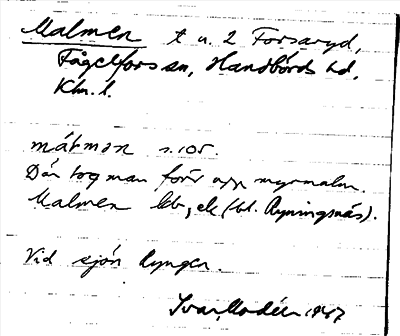 Malmen t u. 2 Forsaryd,
Fågelfors sn, Handbörds hd,
Klm. l.
målmən s. 105.
Där tog man förr upp myrmalm.
Malmen lht, ek (bl. Ryningsnäs).
Vid sjön Ryngen.
Ivar Modéer 1947